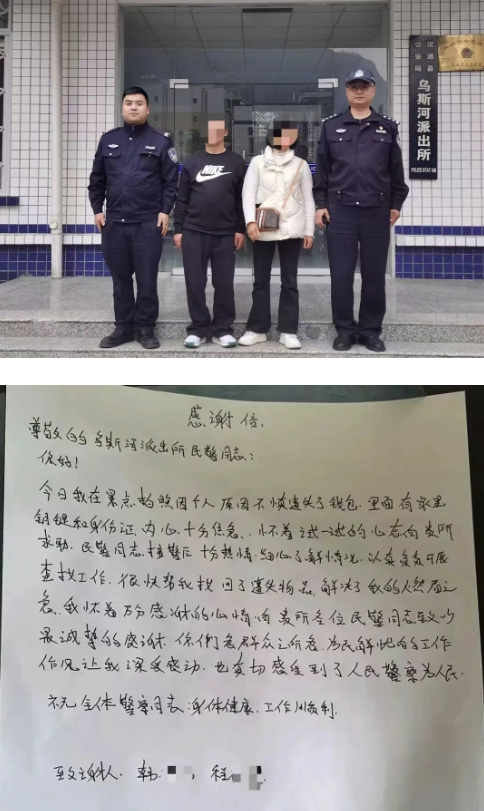 汉源县
公安局
乌斯河派出所
POLICE STATION
NIKE
感谢信
尊敬的乌斯河派出所民警同志:
你好!
今日我在景点拍照因个人原因不慎遗失了钱包,里面有家里
钥匙和身份证,内心十分焦急,怀着试一试的心态向贵所
求助,民警同志接警后十分热情,细心了解情况,认真负责开展
查找工作,很快帮我找回了遗失物品,解决了我的燃眉之
急,我怀着万分感谢的心情向贵所各位民警同志致以
最诚挚的感谢,你们急群众之所急,为民解忧的工作
作风让我深受感动,也真切感受到了人民警察为人民.
祝全体警察同志身体健康,工作顺利.
致谢人:韩 , 程